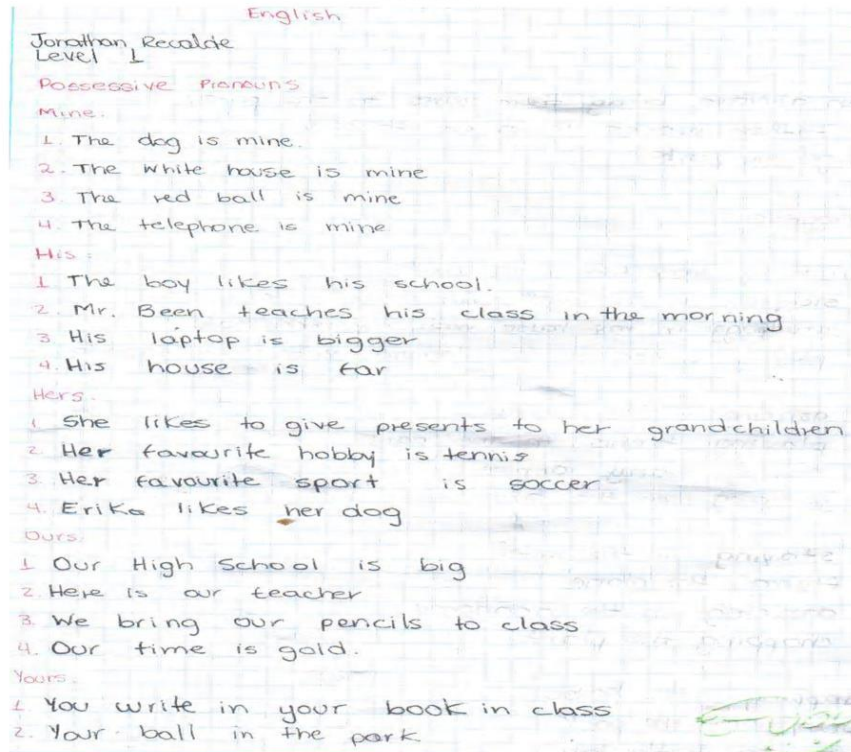 English
Jonathan Recalde
Level 1
Possessive Pronouns
Mine.
1. The dog is mine.
2. The white house is mine
3 The red ball is mine
4. The telephone is mine
His:
1 The boy likes his school.
2. Mr. Been teaches his class in the morning
3 His laptop is bigger
4. His house is far
Hers.
1 She likes to give presents to her grandchildren
2 Her favourite hobby is tennis
3. Her favourite sport is soccer
4. Erika likes her dog
Ours.
1 Our High School is big
2. Here is our teacher
3. We bring our pencils to class
4. Our time is gold.
Yours.
1. You write in your book in class
2. Your ball in the park